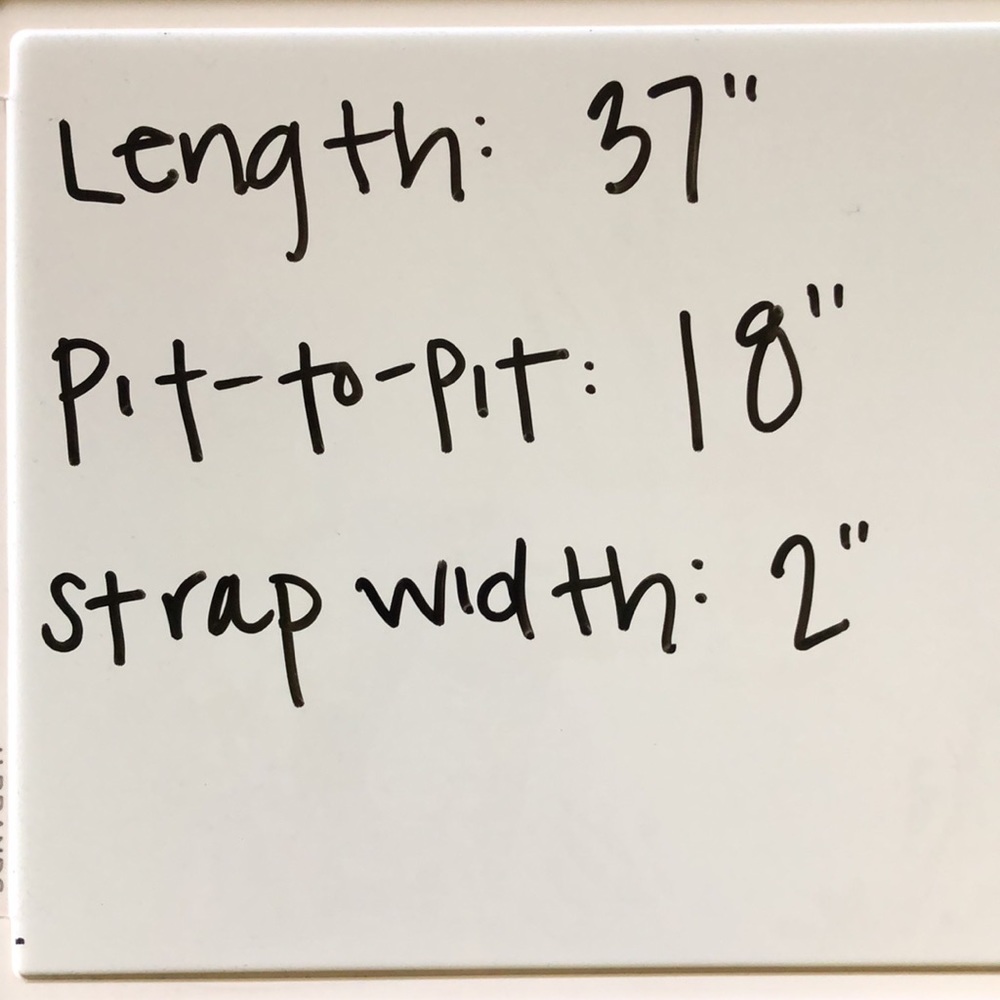 Length: 37"
Pit-to-Pit: 18"
strap width: 2"